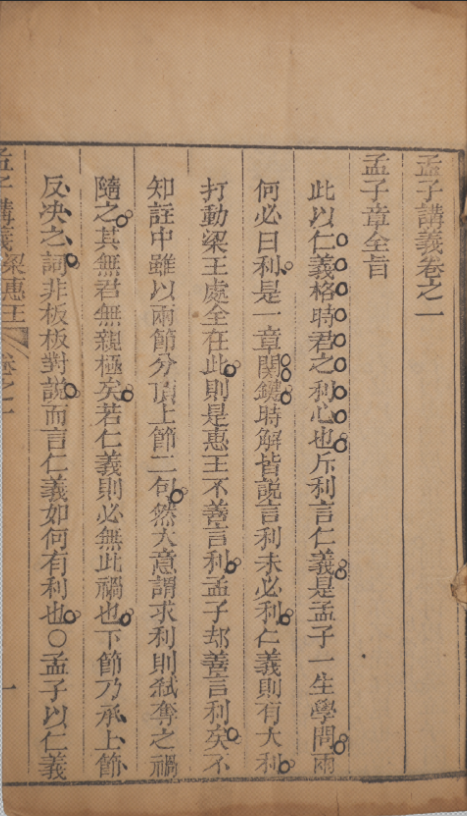 孟子講義卷之一
孟子章全旨
此以仁義格時君之利心也斥利言仁義是孟子一生學問兩
何必曰利是一章關鍵時解皆說言利未必利仁義則有大利
打動梁王處全在此則是惠王不善言利孟子却善言利矣不
知註中雖以兩節分頂上節二句然大意謂求利則弒奪之禍
隨之其無君無親極矣若仁義則必無此禍也下節乃承上節
反决之詞非板板對說而言仁義如何有利也○孟子以仁義
孟子講義 梁惠王 卷之一 一